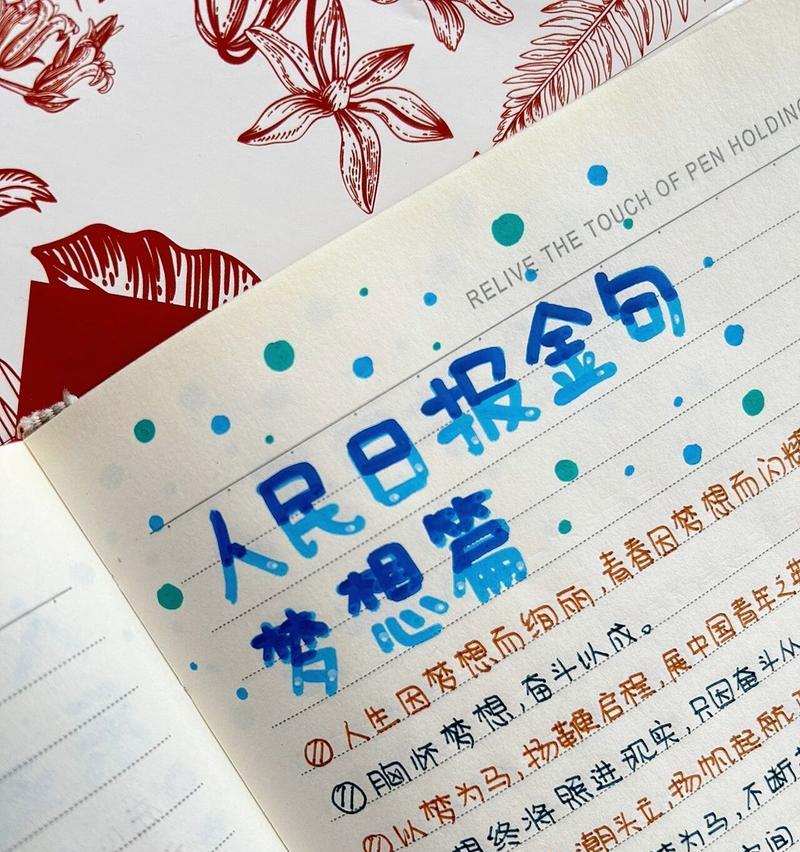 RELIVE THE TOUCH OF PEN HOLDING
人民日报金句
梦想篇
人生因梦想而绚丽,青春因梦想而闪
胸怀梦想,奋斗以成。
以梦为马,扬鞭启程,展中国青年之
想终将照进现实,只因奋斗从
潮头立,扬帆起航
梦为马,不断
间